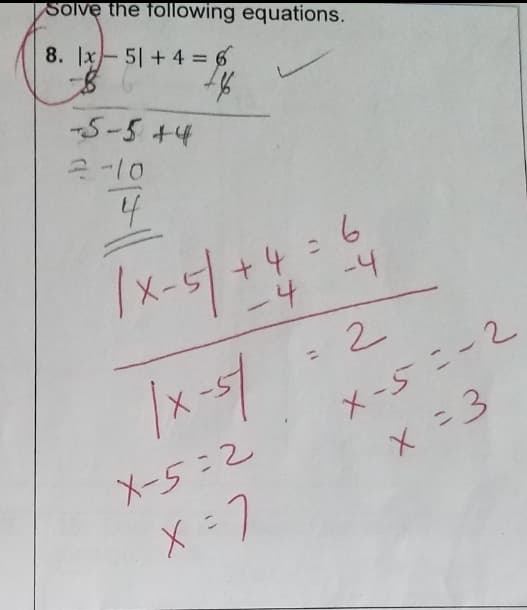 Solve the following equations.
8. |x - 5| + 4 = 6
-6
-5-5 +4
= -10
4
|x-5| + 4 = 6
-4 -4
|x-5| = 2
x-5 = -2
x = 3
x-5 = 2
x = 7